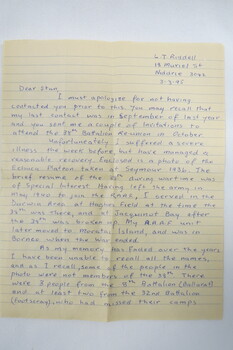 L.T. Riddell
18 Muriel St
Niddrie 3042
2-3-85
Dear Stan,
I must apologise for not having
contacted you prior to this. You may recall that
my last contact was in September of last year
and you sent me a couple of invitations to
attend the 38th Battalion Reunion in October
Unfortunately I suffered a severe
illness the week before, but have managed a
reasonable recovery. Enclosed is a photo of the
Echuca Platoon taken at Seymour 1936. The
brief resume of the 38th during wartime was
of special interest. Having left the army in
May 1940 to join the RAAF, I served in the
Darwin Area at Hughes Field at the time the
38th was there, and at Jacquinot Bay after
the 38th was broken up. My RAAF unit
later moved to Morotai Island, and was in
Borneo when the war ended.
As my memory has faded over the years
I have been unable to recall all the names,
and as I recall, some of the people in the
photo were not members of the 38th. There
were 3 people from the 8th Battalion (Ballarat)
and at least two from the 32nd Battalion
(Footscray), who had missed their camps.